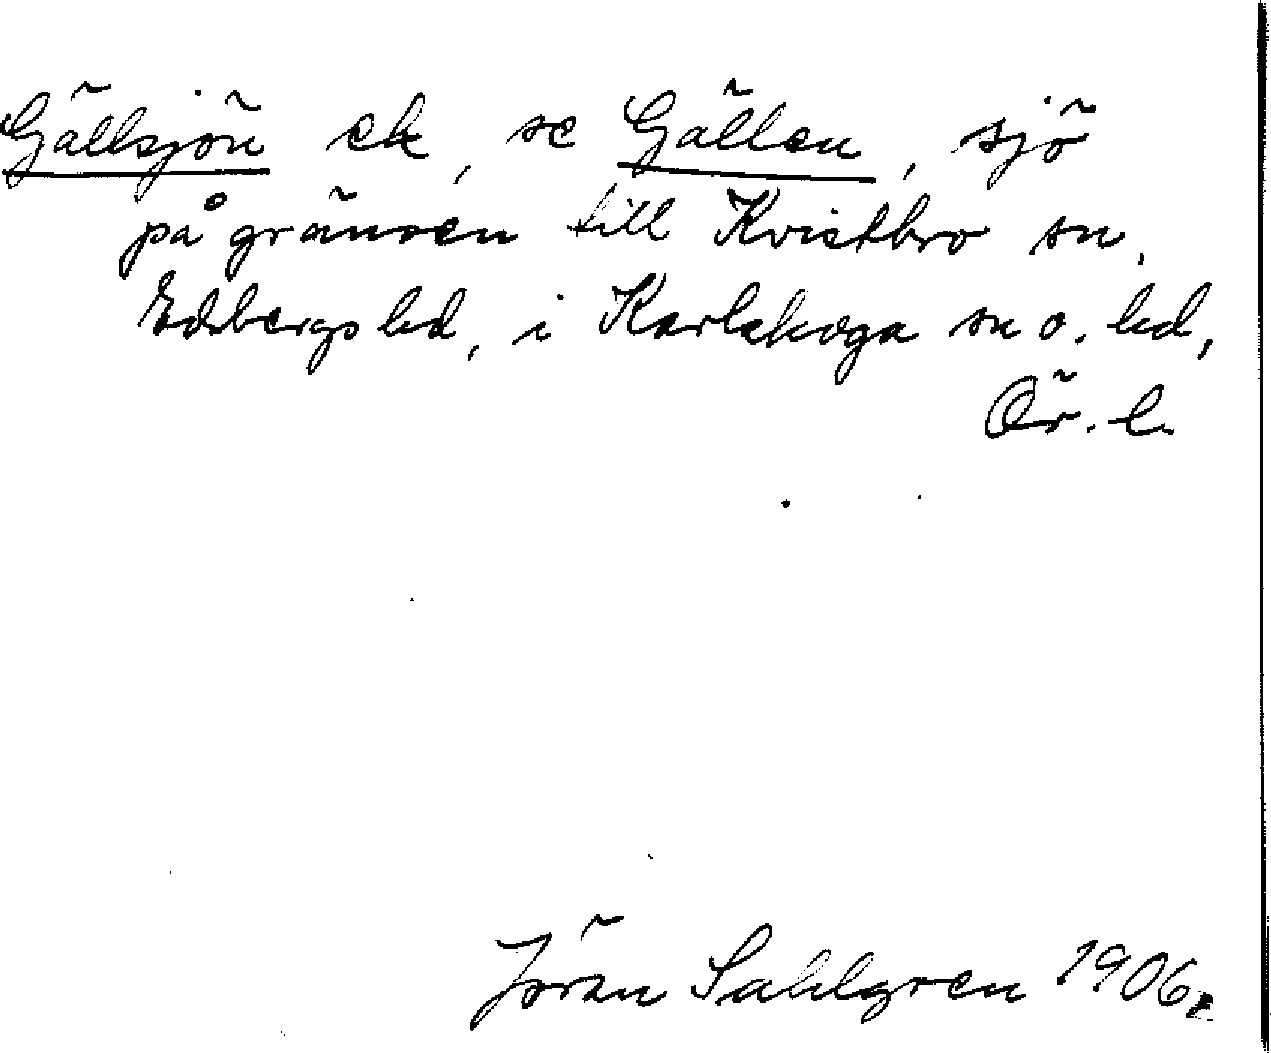 Gällsjön ek, se Gällen, sjö
på gränsen till Kvistbro sn,
Edsbergs hd, i Karlskoga sn o. hd,
Ör. l.
Jöran Sahlgren 1906.